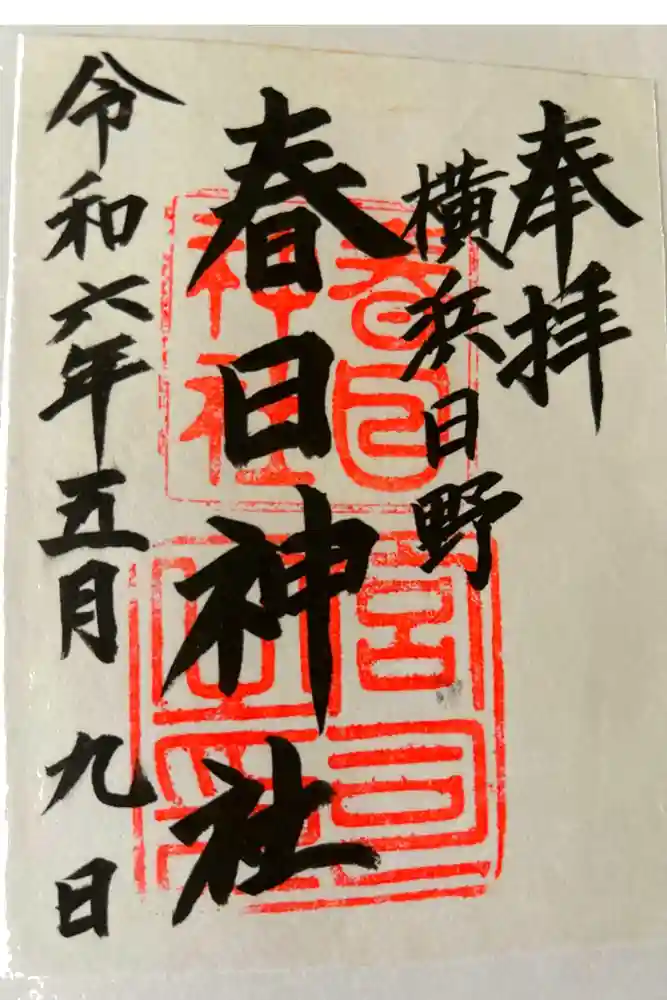 奉拝
横浜日野
春日神社
令和六年五月九日
春日
神社
宮司
之印